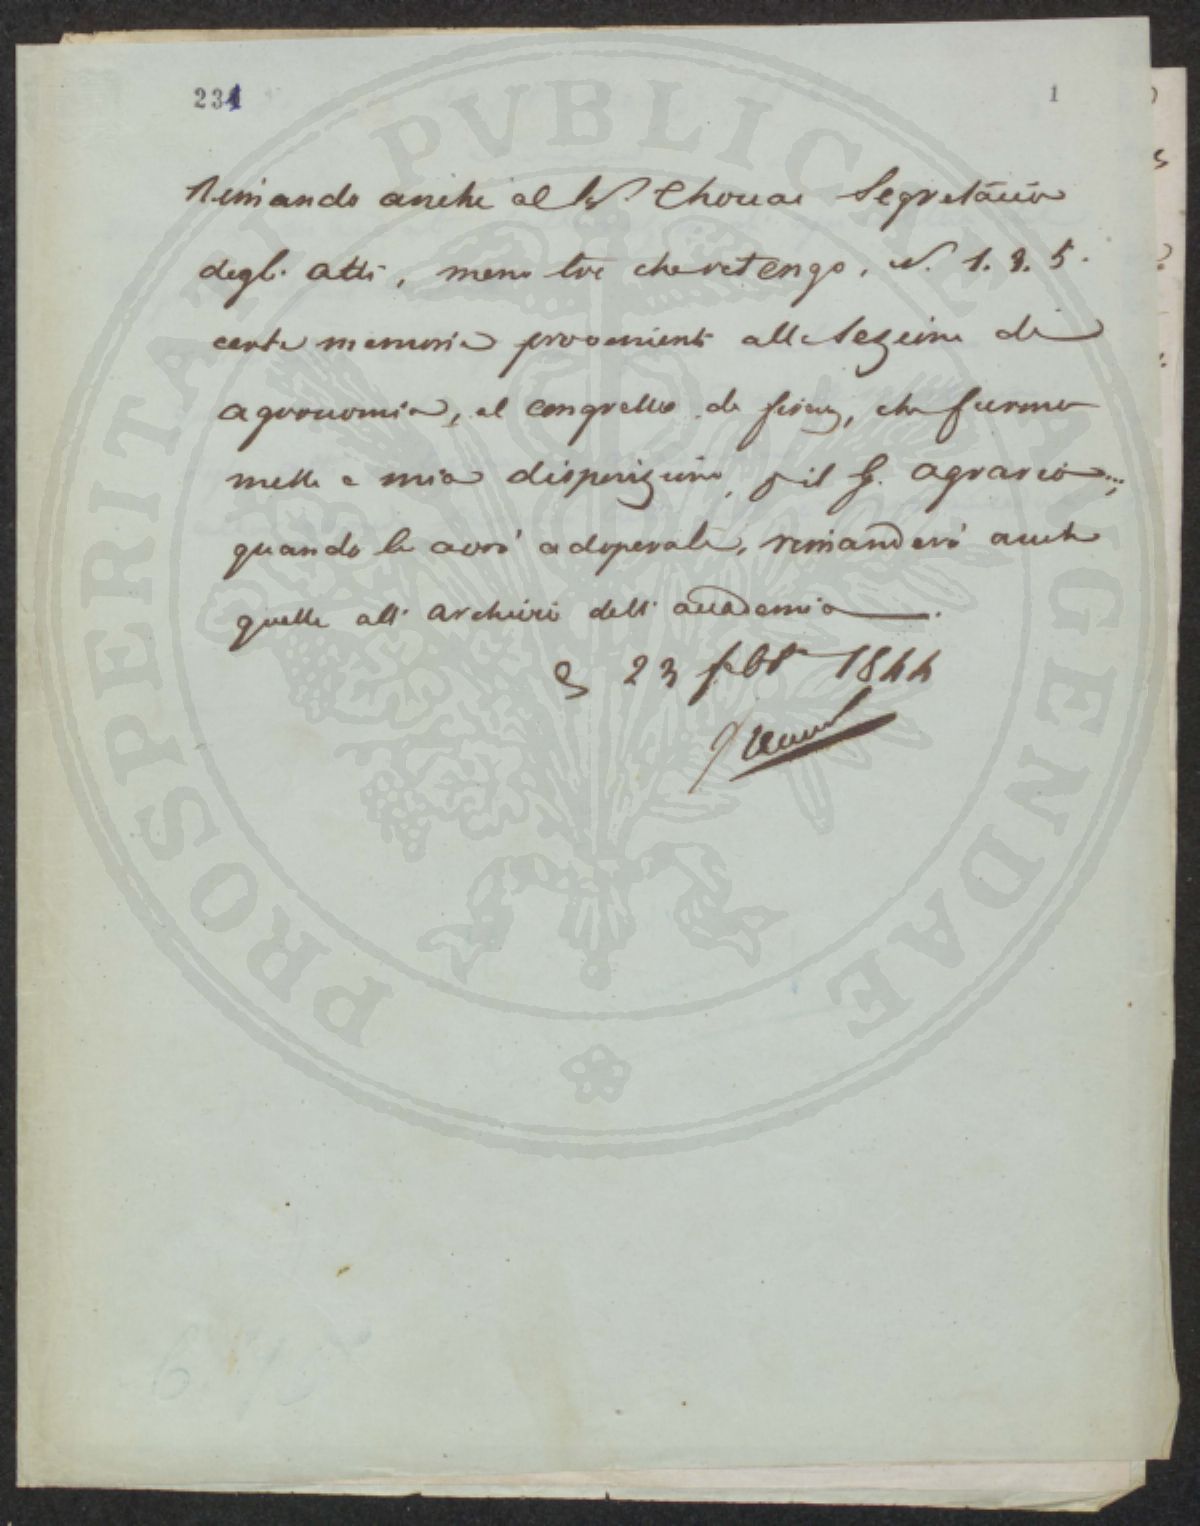 234 1
Rimando anche al Sr. Chouar Segretario
degli Atti, meno tre che retengo, N. 1. 3. 5.
certe memorie provenienti alla Sezione di
agronomia, al congresso di firenze, che furono
messe a mia disposizione, p il G. agrario...,
quando le avrò adoperate, rimanderò anche
quelle all' archivio dell' accademia.
23 febb 1844
PROSPERITATI PVBLICAE AVGENDAE